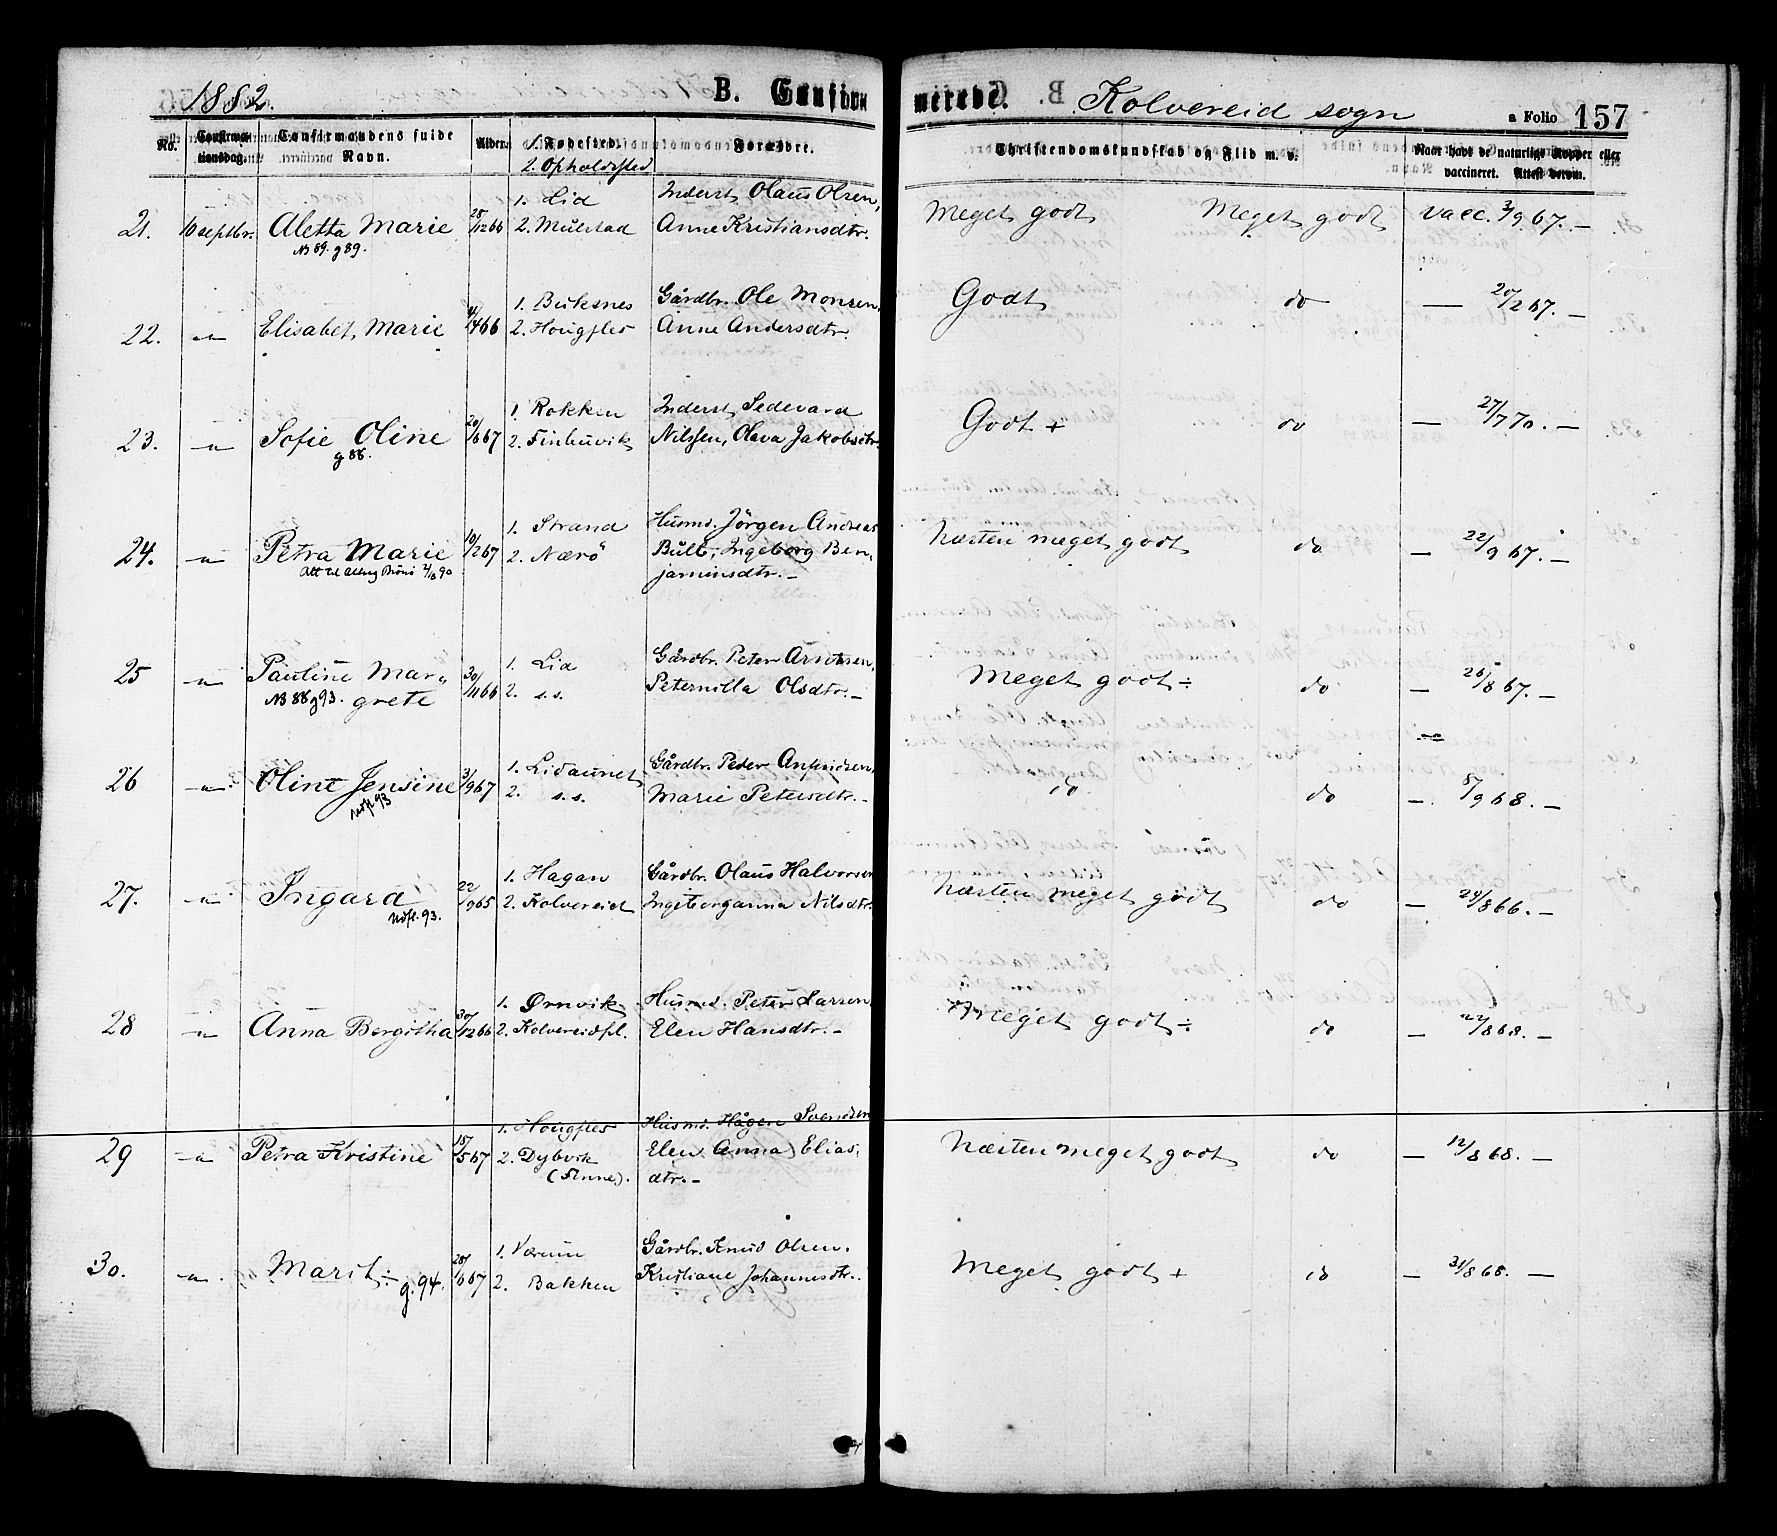 1882. B. Confirmerede. Kolvereid sogn a Folio 157
No. Confirmationsdag. Confirmandens fulde Navn. Alder. 1. Fødested. 2. Opholdssted Forældre. Christendomskundskab og Flid m. v. Naar havt de naturlige Kopper eller vaccineret. Attest derom.
21. 10 septbr. Aletta Marie 28/12 66 1. Lid Inderst Olaus Olsen, Meget godt Meget godt vacc. 3/9 67. —
N 89. g 89. 2. Mulstad Anne Kristiansdtr.
22. -"- Elisabet Marie 4/4 66 1. Buksnes Gårdbr. Ole Monsen, Godt do — 20/2 67. —
2. Hougfles Anne Andersdtr.
23. -"- Sofie Oline 20/6 67 1. Rokken Inderst Sedevard Godt + do — 27/7 70. —
g 88. 2. Finhuvik Nilssen, Olava Jakobsdtr.
24. -"- Petra Marie 10/2 67 1. Strand Husmd. Jörgen Andreas Næsten meget godt do — 22/9 67. —
2. Nærö Bull, Ingeborg Ben-
jaminsdtr. —
25 -"- Pauline Mar- 30/11 66 1. Lid Gårdbr. Peter Arntsen, Meget godt ÷ do — 26/8 67. —
N 88 g 93. grete 2. s.s. Peternilla Olsdtr. —
26 -"- Oline Jensine 3/9 67 1. Lidaunet Gårdbr. Peder Anfindsen, do do — 5/9 68. —
Udfl 93 2. s.s. Marie Petersdtr. —
27. -"- Ingara 22/9 65 1. Hagan Gårdbr. Olaus Halvorsen Næsten meget godt do — 24/8 66. —
Udfl. 93. 2. Kolvereid Ingeborganna Nilsdtr.
28 -"- Anna Bergitha 30/12 66 1. Ørnvik Husmd. Peter Larsen, Meget godt ÷ do — 22/8 68. —
2. Kolvereidpl. Elen Hansdtr. —
29 -"- Petra Kristine 15/5 67 1. Hougfles Husmd. Hågen Svendsen Næsten meget godt do — 12/8 68. —
2. Dybvik Elen Anna Elias-
(Finne). dtr. —
30. -"- Marit ÷ 28/6 67 1. Værum Gårdbr. Knud Olsen, Meget godt + do — 31/8 68. —
g. 94. 2. Bakken Kristiane Johannesdtr.